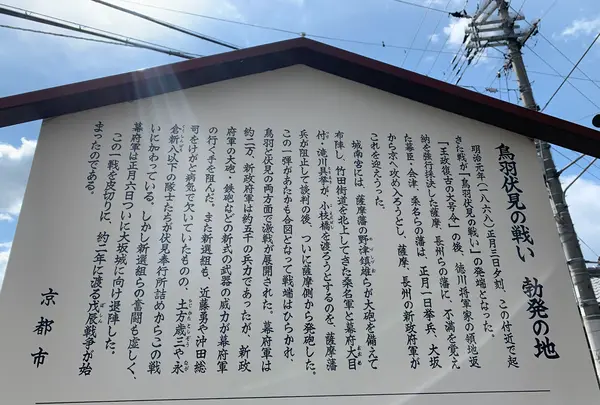 鳥羽伏見の戦い　勃発の地
明治元年(一八六八)正月三日夕刻、この付近で起
きた戦が「鳥羽伏見の戦い」の発端となった。
「王政復古の大号令」の後、徳川将軍家の領地返
納を強行採決した薩摩、長州らの藩に、不満を覚え
た幕臣・会津、桑名らの藩は、正月一日挙兵、大坂
から京へ攻め入ろうとし、薩摩、長州の新政府軍が
これを迎えうった。
城南宮には、薩摩藩の野津鎮雄らが大砲を備えて
布陣し、竹田街道を北上してきた桑名軍と幕府大目
付・滝川具挙が、小枝橋を渡ろうとするのを、薩摩藩
兵が阻止して談判の後、ついに薩摩側から発砲した。
この一弾があたかも合図となって戦端はひらかれ、
鳥羽と伏見の両方面で激戦が展開された。幕府軍は
約二万、新政府軍は約五千の兵力であったが、新政
府軍の大砲、鉄砲などの新式の武器の威力が幕府軍
の行く手を阻んだ。また新選組も、近藤勇や沖田総
司をけがと病気で欠いていたものの、土方歳三や永
倉新八以下の隊士たちが伏見奉行所詰めからこの戦
いにかわっている。しかし新選組らの奮闘も虚しく、
幕府軍は正月六日ついに大坂城に向け退陣した。
この一戦を皮切りに、約二年に渡る戊辰戦争が始
まったのである。
京都市